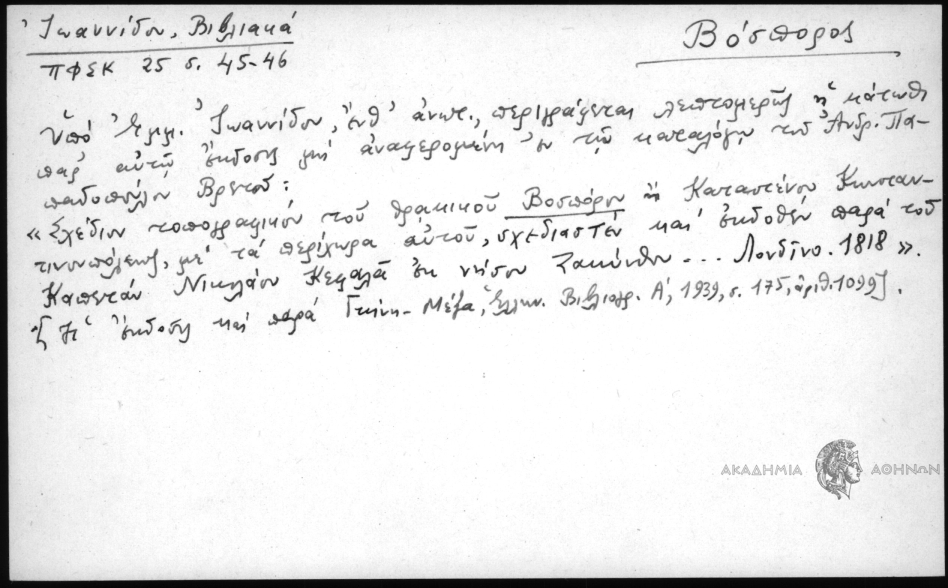 Ἰωαννίδου, Βιβλιακά
Βόσπορος
ΠΦΣΚ 25 σ. 45-46
Ὑπό Ἐμμ. Ἰωαννίδου, ἔνθ' ἀνωτ., περιγράφεται λεπτομερῶς ἡ κάτωθι
παρ' αὐτῷ ἔκδοσις μή ἀναφερομένη ἐν τῷ καταλόγῳ τοῦ Ἀνδρ. Πα-
παδοπούλου Βρετοῦ:
«Σχέδιον τοπογραφικόν τοῦ θρακικοῦ Βοσπόρου ἢ Καταστένου Κωνσταν-
τινουπόλεως, μέ τά περίχωρα αὐτοῦ, σχεδιαστέν καί ἐκδοθέν παρά τοῦ
Καπετάν Νικολάου Κεφαλᾶ ἐκ νήσου Ζακύνθου... Λονδίνο. 1818».
ἔκδοσις καί παρά Γκίνη-Μέξα, Ἑλλην. Βιβλιογρ. Α', 1939, σ. 175, ἀριθ. 1099].
ΑΚΑΔΗΜΙΑ ΑΘΗΝΩΝ